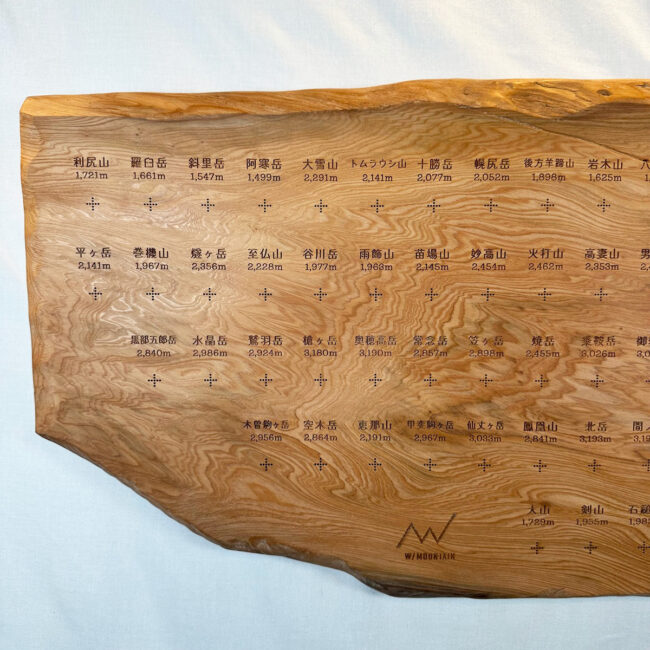 利尻山 羅臼岳 斜里岳 阿寒岳 大雪山 トムラウシ山 十勝岳 幌尻岳 後方羊蹄山 岩木山
1,721m 1,661m 1,547m 1,499m 2,291m 2,141m 2,077m 2,052m 1,898m 1,625m
平ヶ岳 巻機山 燧ヶ岳 至仏山 谷川岳 雨飾山 苗場山 妙高山 火打山 高妻山
2,141m 1,967m 2,356m 2,228m 1,977m 1,963m 2,145m 2,454m 2,462m 2,353m
黒部五郎岳 水晶岳 鷲羽岳 槍ヶ岳 奥穂高岳 常念岳 笠ヶ岳 焼岳 乗鞍岳
2,840m 2,986m 2,924m 3,180m 3,190m 2,857m 2,898m 2,455m 3,026m
木曽駒ヶ岳 空木岳 恵那山 甲斐駒ヶ岳 仙丈ヶ岳 鳳凰山 北岳
2,956m 2,864m 2,191m 2,967m 3,033m 2,841m 3,193m
大山 剣山
1,729m 1,955m
W/MOUNTAIN